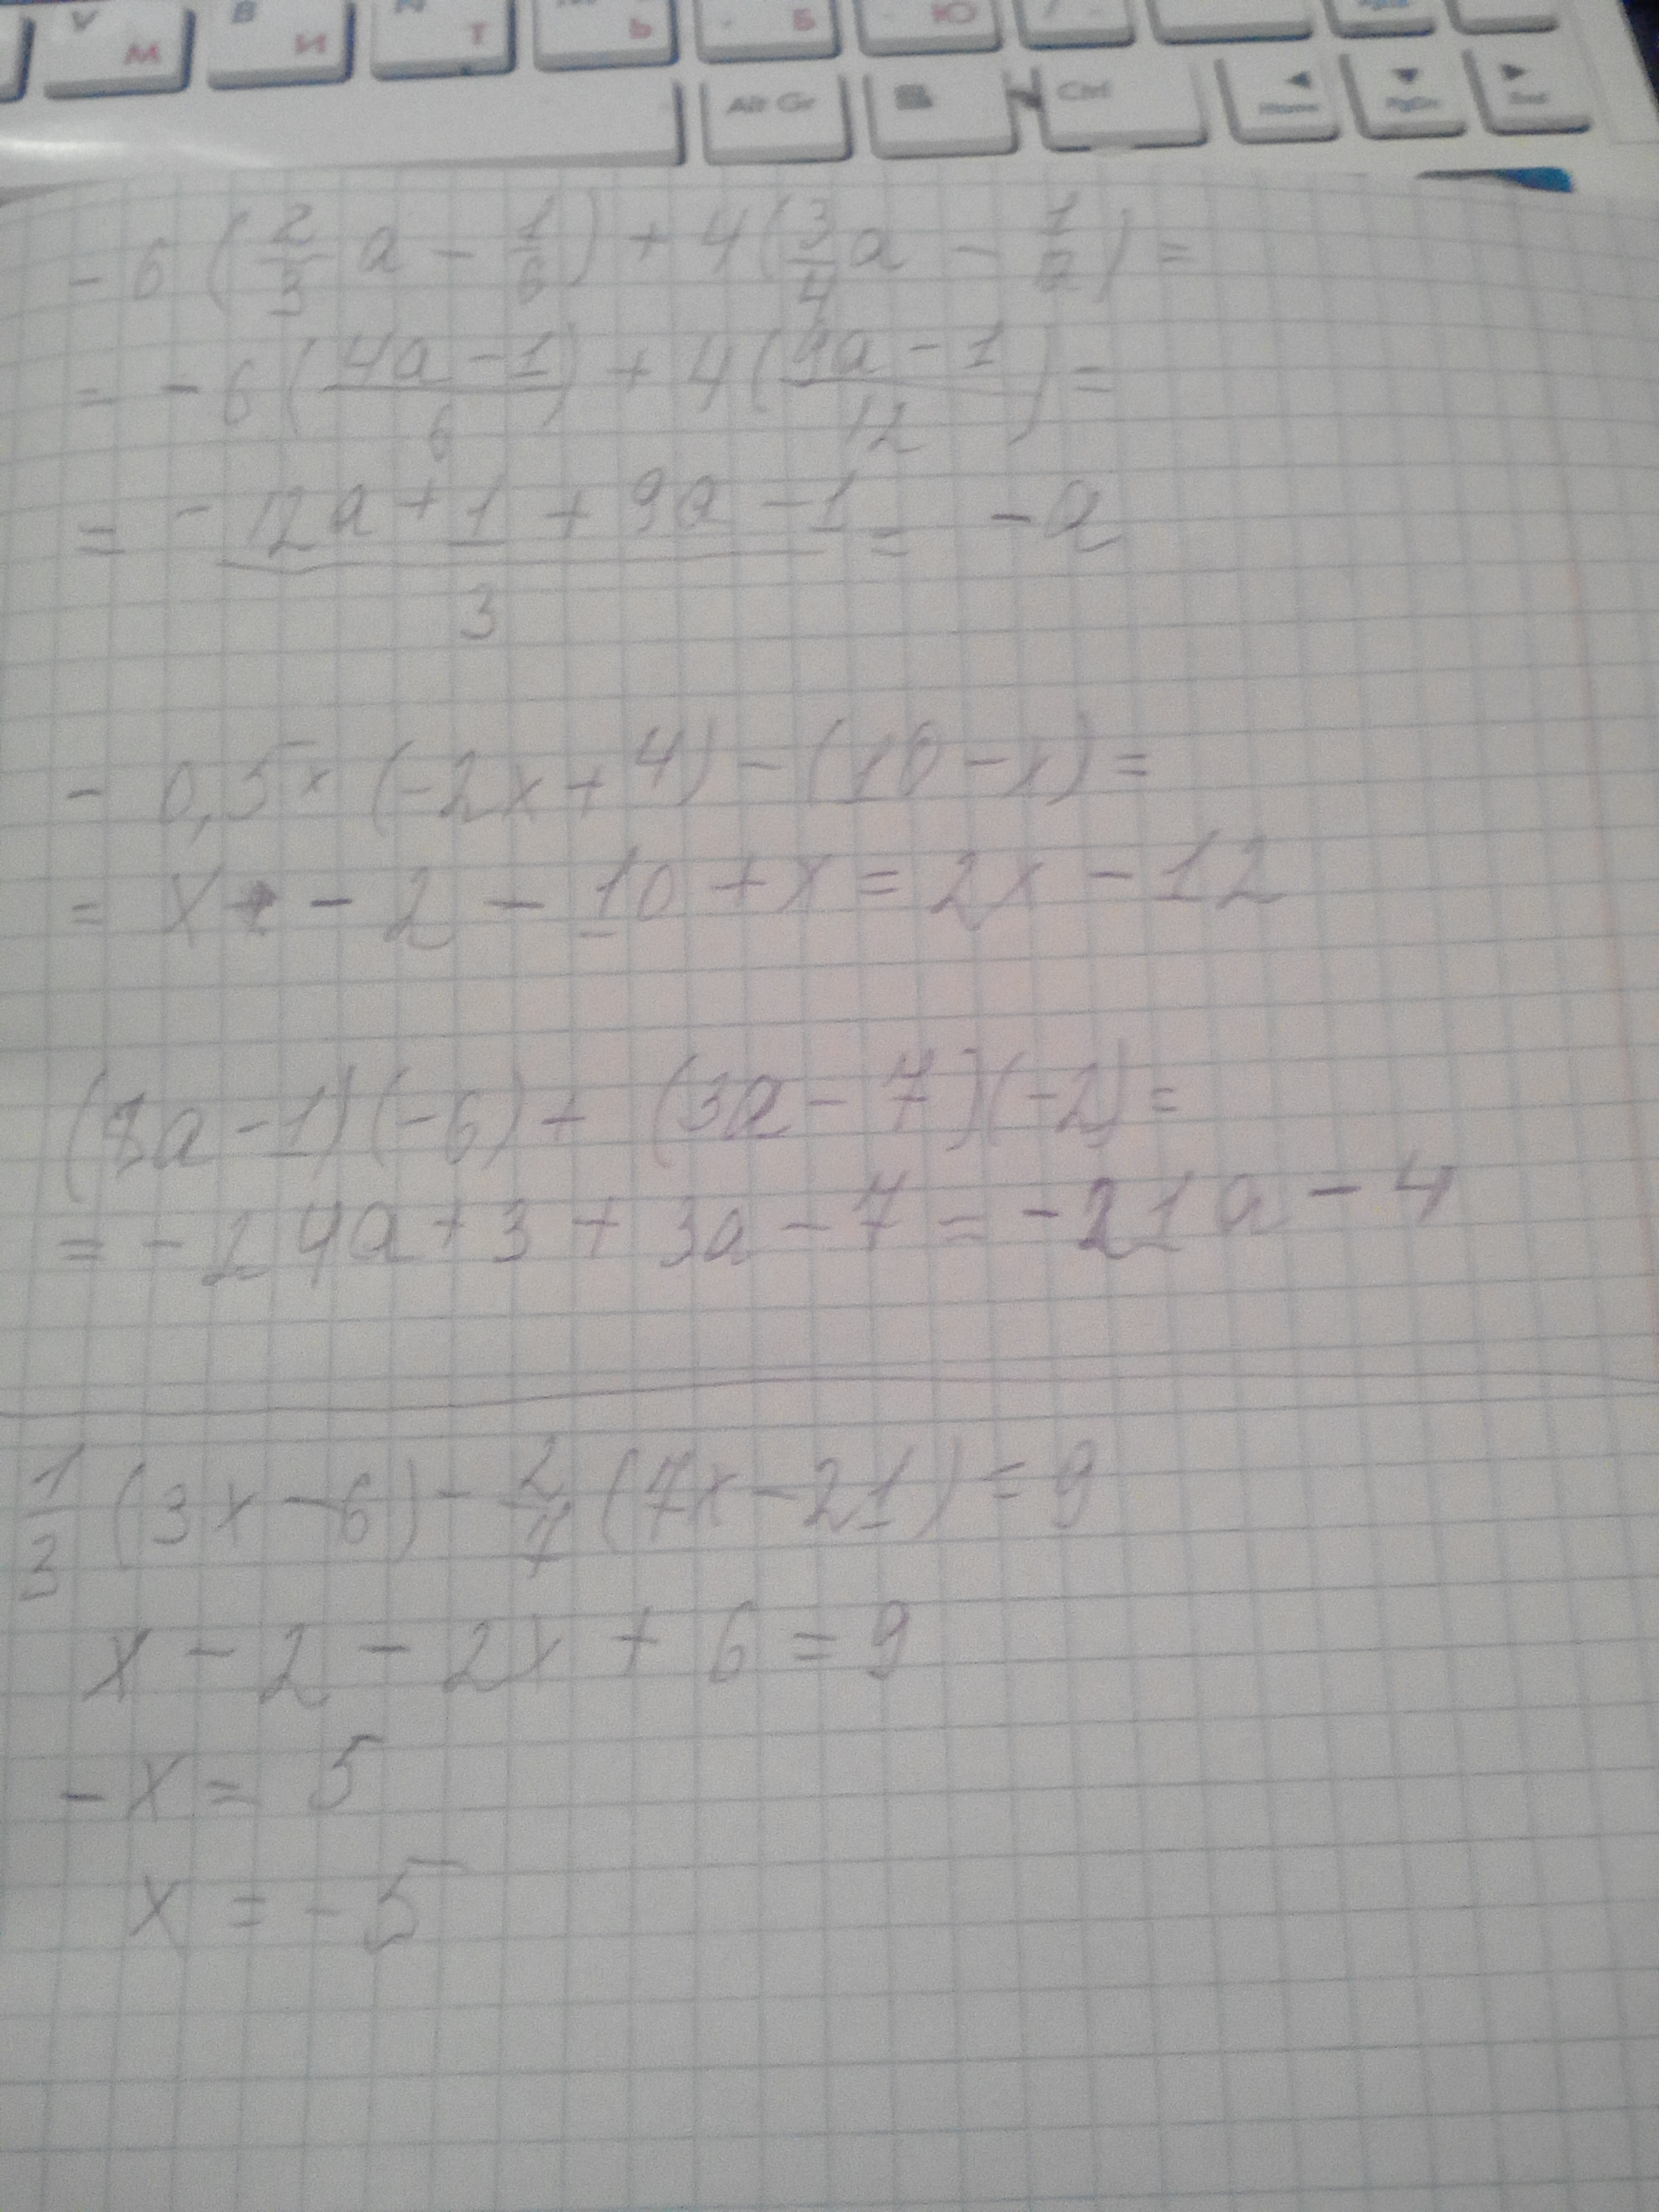 V М B И N Т Ь Б Ю
Alt Gr Ctrl Home PgDn End
- 6 ( 2/3 a - 1/6 ) + 4 ( 3/4 a - 1/2 ) =
= - 6 ( (4a - 1)/6 ) + 4 ( (9a - 1)/12 ) =
= (- 12a + 1 + 9a - 1)/3 = - a
- 0,5 × (-2x + 4) - (10 - x) =
= x - 2 - 10 + x = 2x - 12
(8a - 1)(-6) + (3a - 7)(-2) =
= - 24a + 3 + 3a - 7 = - 21a - 4
1/3 (3x - 6) - 2/7 (7x - 21) = 9
x - 2 - 2x + 6 = 9
- x = 5
x = - 5